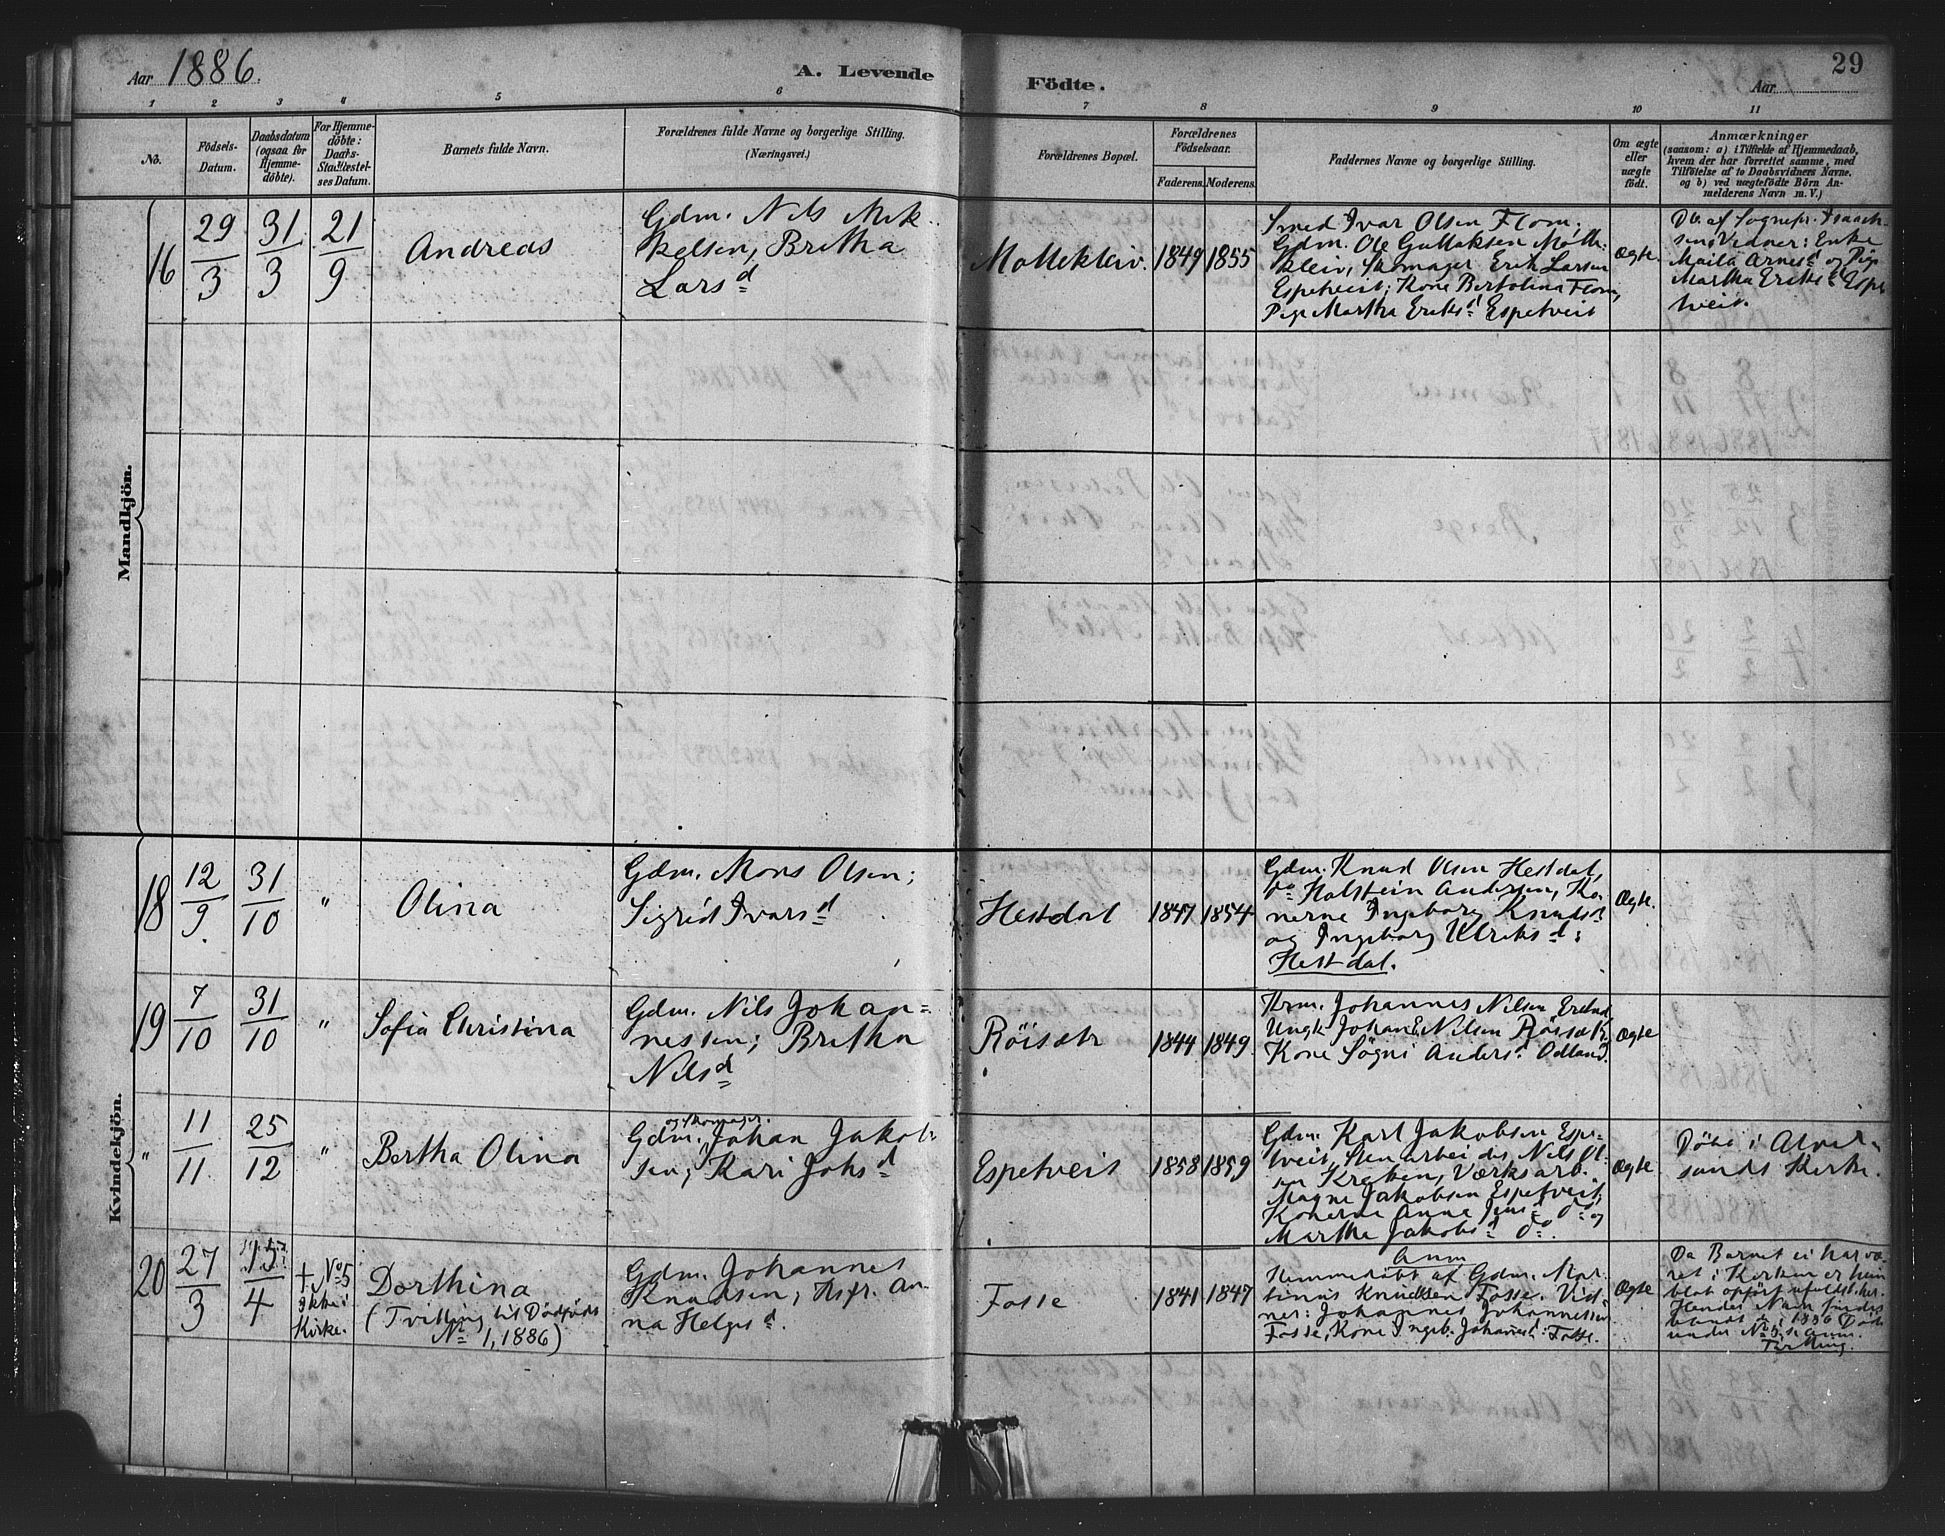 Aar 1886.
A. Levende Födte.
29
Aar
1 2 3 4 5 6 7 8 9 10 11
No.
Födsels-Datum.
Daabsdatum (ogsaa for Hjemmedöbte).
For Hjemmedöbte: Daabs-Stadfæstelses Datum.
Barnets fulde Navn.
Forældrenes fulde Navne og borgerlige Stilling.
(Næringsvei.)
Forældrenes Bopæl.
Forældrenes Födselsaar.
Faderens. Moderens.
Faddernes Navne og borgerlige Stilling.
Om ægte eller uægte födt.
Anmærkninger
(saasom: a) i Tilfælde af Hjemmedaab,
hvem der har forrettet samme, med
Tilföielse af to Daabsvidners Navne,
og b) ved uægtefödte Börn An-
melderens Navn m. V.)
Mandkjön.
16
29/3
31/3
21/9
Andreas
Gdm. Nils Mik-
kelsen, Britha
Larsd
Mollekleiv.
1849
1855
Smed Ivar Olsen Flom;
Gdm. Ole Gullaksen Mølle-
kleiv, Skomager Erik Larsen
Espetveit; Kone Bertolina Flom,
Pige Martha Eriksd Espetveit
Ægte.
Db af Sognepr. Isaach-
sen Vidner: Enke
Arnesd og Pige
Martha Eriksd Espe
tveit.
Kvindekjön.
18
12/9.
31/10
"
Olina
Gdm. Mons Olsen;
Sigrid Ivarsd
Hestdal
1847
1854
Gdm. Knud Olsen Hestdal,
do Halstein Andersen, Ko-
nerne Ingeborg Knudsd
og Ingeborg Ulriksd:
Hestdal.
Ægte.
19
7/10
31/10
"
Sofia Christina
Gdm. Nils Johan=
nessen; Britha
Nilsd
Röisætr
1844
1849.
Johannes Nilsen
Ungk Johan E Nilsen Röisæt
Kone Søgni Andersd Odland.
Ægte
"
11/11
25/12
"
Bertha Olina
og Skomager.
Gdm. Johan Jakob-
sen; Kari Johsd
Espetveit
1858
1859
Gdm. Karl Jakobsen Espe-
tveit, Stenarbeider Nils Ol-
sen, Værksarb.
Magne Jakobsen Espetveit;
Konerne Anna Jensd do og
Martha Jakobsd do.
Ægte
Döbt i Alver
sunds Kirke.
20
27/3
13/4
+ No 5
Ikke i
Kirke.
Dorthina
(Tvilling til Dödföds
No 1, 1886)
Gdm. Johannes
Knudsen, Hsfr. An-
na Helgesd.
Fosse
1841
1847
Anm
Hemmedøbt af Gdm. Mar-
tinus Knudsen Fosse. Vid-
ner: Johannes Johannessen
Fosse, Kone Ingeb. Johannesd: Fosse.
Ægte
Da Barnet ei har væ-
ret i Kirken er hun
blot opført
Hendes Navn findes
blandt de i 1886 Døde
under No 5, se Anm.
Tvilling.